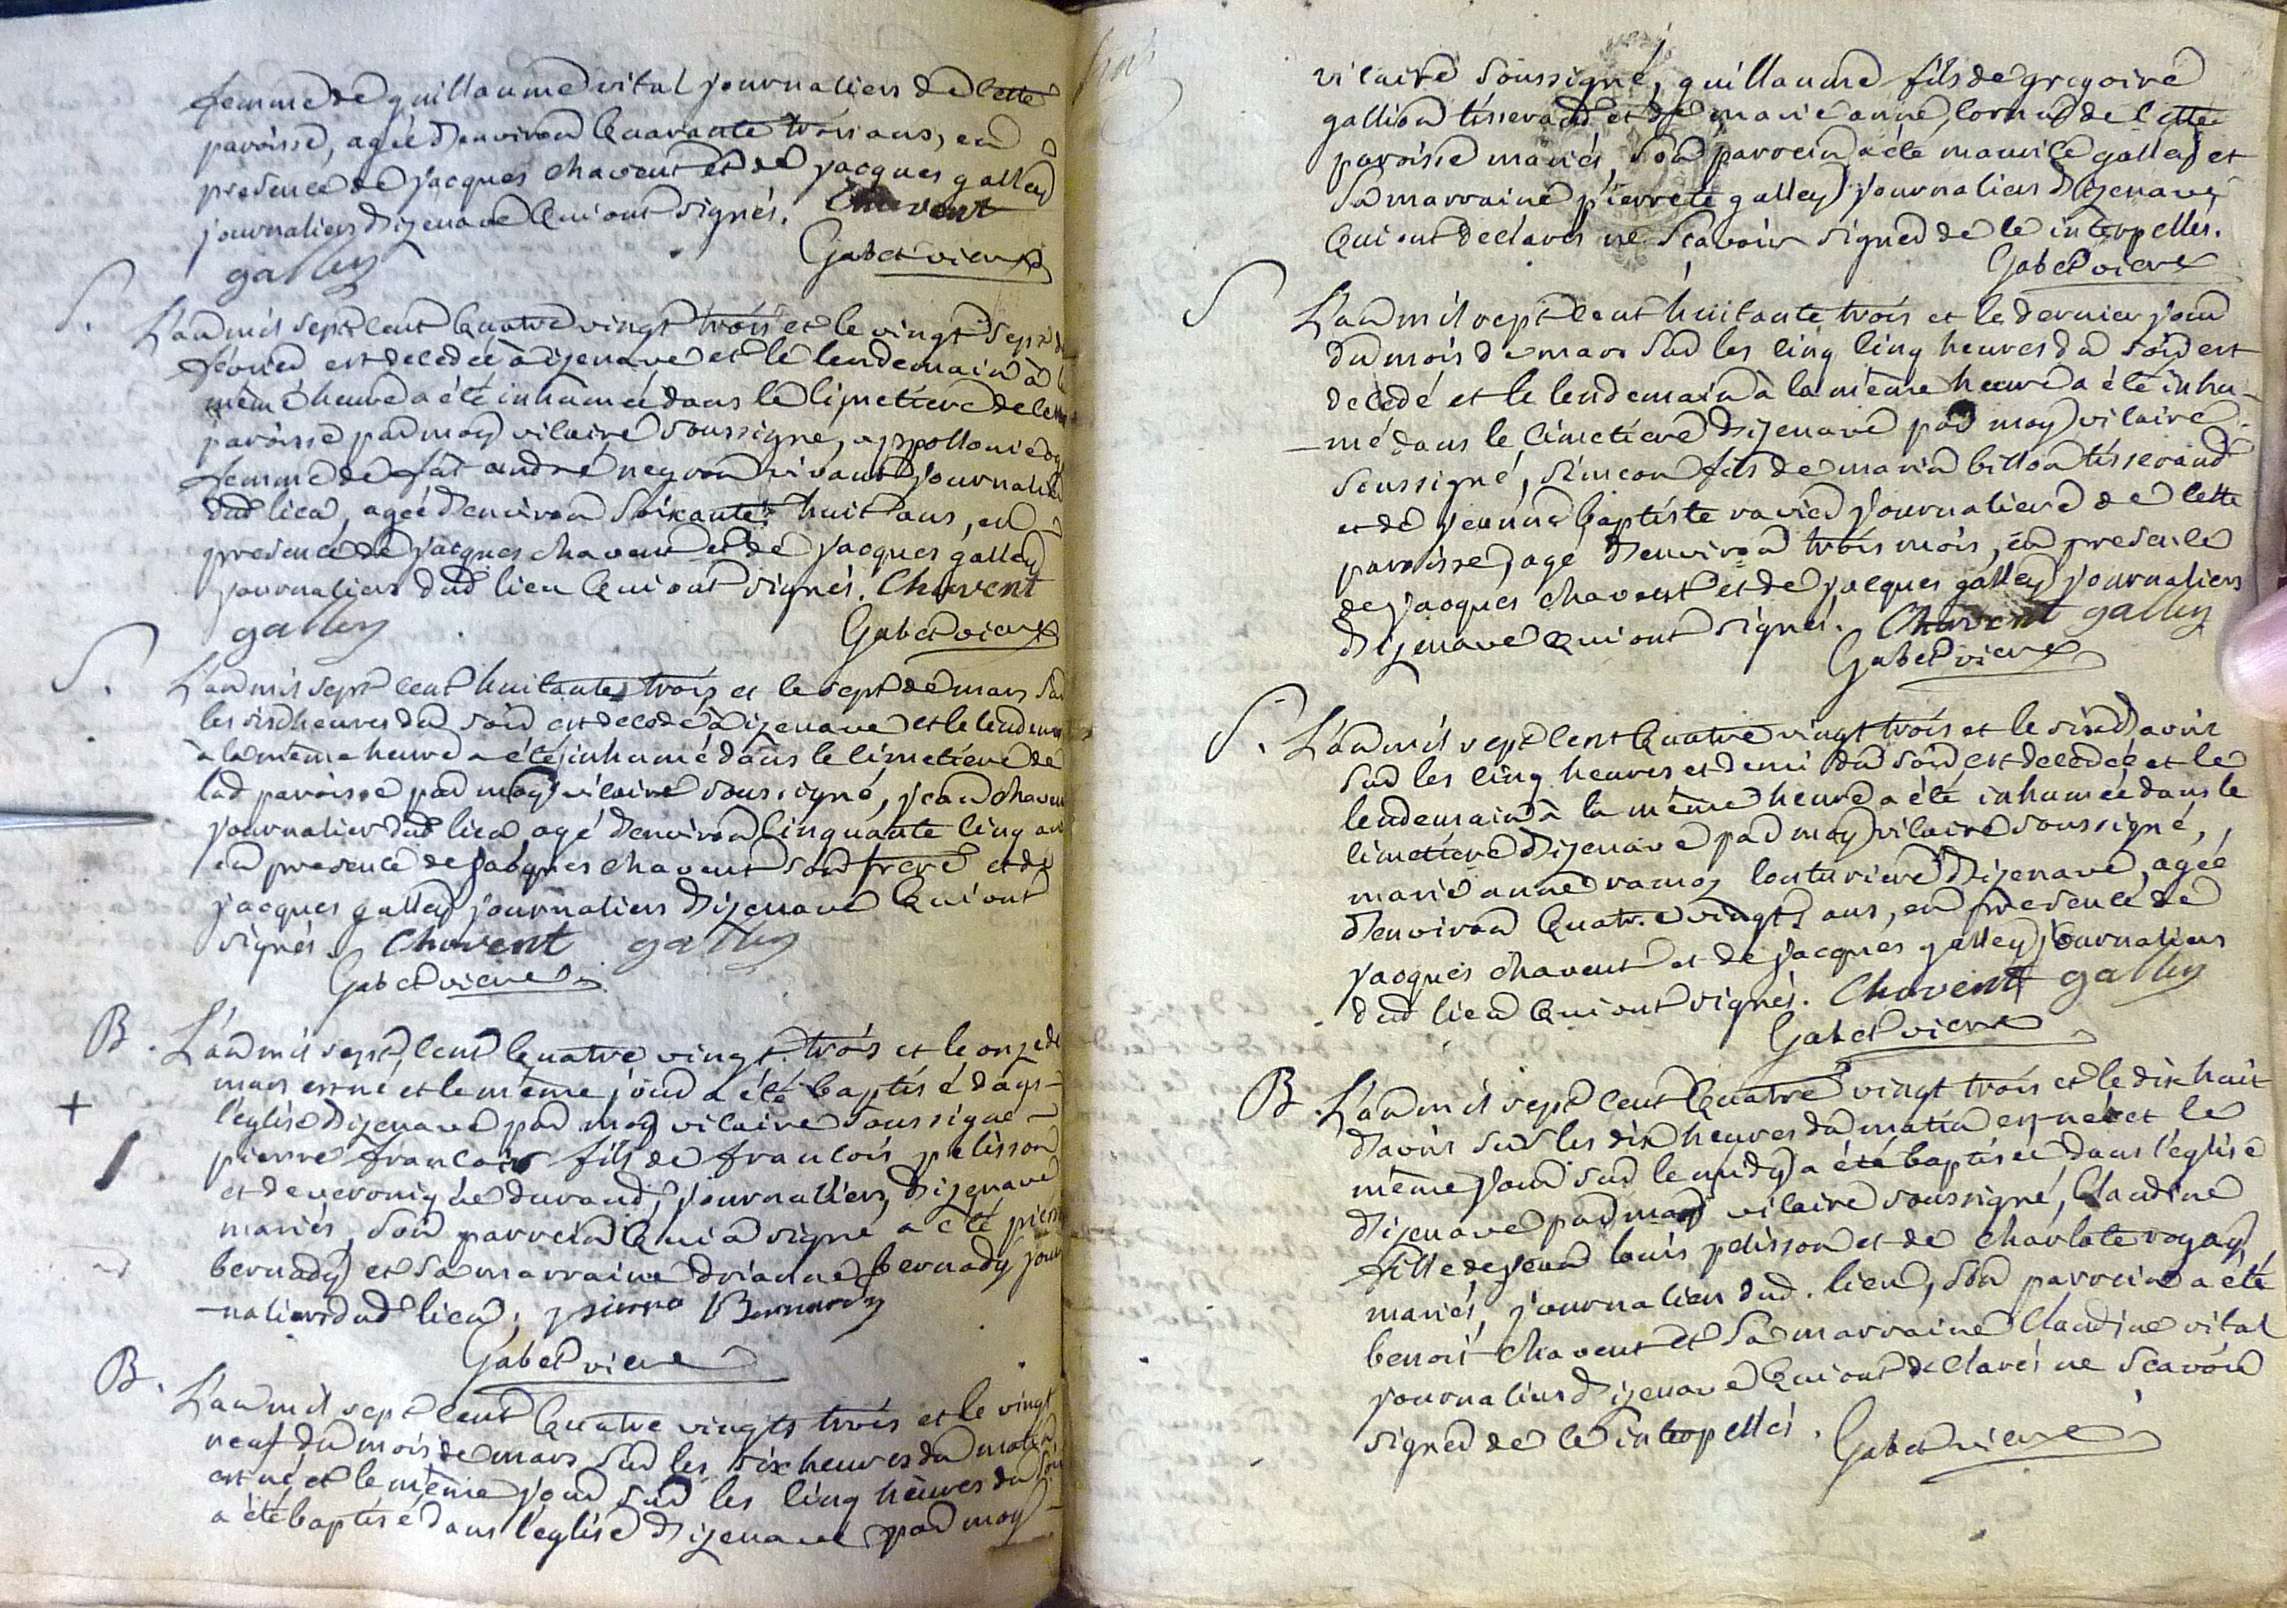 femme de guillaume vital journaliers de cette
paroisse, agée d'environ quarante trois ans, en
presence de jacques chavent et de jacques galley
journaliers d'izenave qui ont signés. Chavent
galley Gabet vicaire
S. L'an mil sept cent quatre vingt trois et le vingt sept de
fevrier est decedée à izenave et le lendemain à la
même heure a été inhumée dans le cimetiere de cette
paroisse par moy vicaire soussigné, appollonie
femme de fût andré neyron vivant journalier
dud lieu, agée d'environ soixante huit ans, en
presence de jacques chavent et de jacques galley
journaliers dud lieu qui ont signés. Chavent
galley Gabet vicaire
S. L'an mil sept cent huitante trois et le sept de mars sur
les six heures du soir est decedé à izenave et le lendemain
à la même heure a été inhumé dans le cimetiere de
lad paroisse par moy vicaire soussigné, jean chavent
journalier dud lieu, agé d'environ cinquante cinq ans
en presence de jacques chavent son frere et de
jacques galley journaliers d'izenave qui ont
signés. Chavent galley
Gabet vicaire
B. L'an mil sept cent quatre vingt trois et le onze de
mars est né et le même jour a été baptisé dans
+ l'église d'izenave par moy vicaire soussigné
pierre francois fils de francois pelisson
et de veronique durand, journaliers, d'izenave
mariés, son parrein qui a signé a été pierre
bernady et sa marraine drianne bernady jour
-naliers dud lieu, pierre Bernardy
Gabet vicaire
B. L'an mil sept cent quatre vingts trois et le vingt
neuf du mois de mars sur les six heures du matin
est né et le même jour sur les cinq heures du soir
a été baptisé dans l'église d'izenave par moy
vicaire soussigné, guillaume fils de gregoire
gallion tisserand et de marie anne cornu de cette
paroisse mariés, son parrein a été maurice galley et
sa marraine pierrete galley journaliers d'izenave,
qui ont declarés ne scavoir signer de ce interpellés.
Gabet vicaire
S L'an mil sept cent huitante trois et le dernier jour
du mois de mars sur les cinq cinq heures du soir est
decedé et le lendemain à la même heure a été inhu-
-mé dans le cimetiere d'izenave par moy vicaire
soussigné, simeon fils de marin billon tisserand
et de jeanne baptiste ravier journaliere de cette
paroisse, agé d'environ trois mois, en presence
de jacques chavent et de jacques galley journaliers
d'izenave qui ont signés. Chavent galley
Gabet vicaire
S. L'an mil sept cent quatre vingt trois et le six d'avril
sur les cinq heures et demi du soir, est decedée et le
lendemain à la même heure a été inhumée dans le
cimetiere d'izenave par moy vicaire soussigné,
marie anne ramoz couturiere d'izenave, agée
d'environ quatre vingts ans, en presence de
jacques chavent et de jacques galley journaliers
dud lieu qui ont signés. Chavent galley
Gabet vicaire
B. L'an mil sept cent quatre vingt trois et le dix huit
d'avril sur les dix heures du matin est née et le
même jour sur le midy a été baptisée dans l'église
d'izenave par moy vicaire soussigné, Claudine
fille de jean louis pelisson et de charlote
mariés, journaliers dud. lieu, son parrein a été
benoit chavent et sa marraine Claudine vital
journaliers d'izenave qui ont declarés ne scavoir
signer de ce interpellés. Gabet vicaire